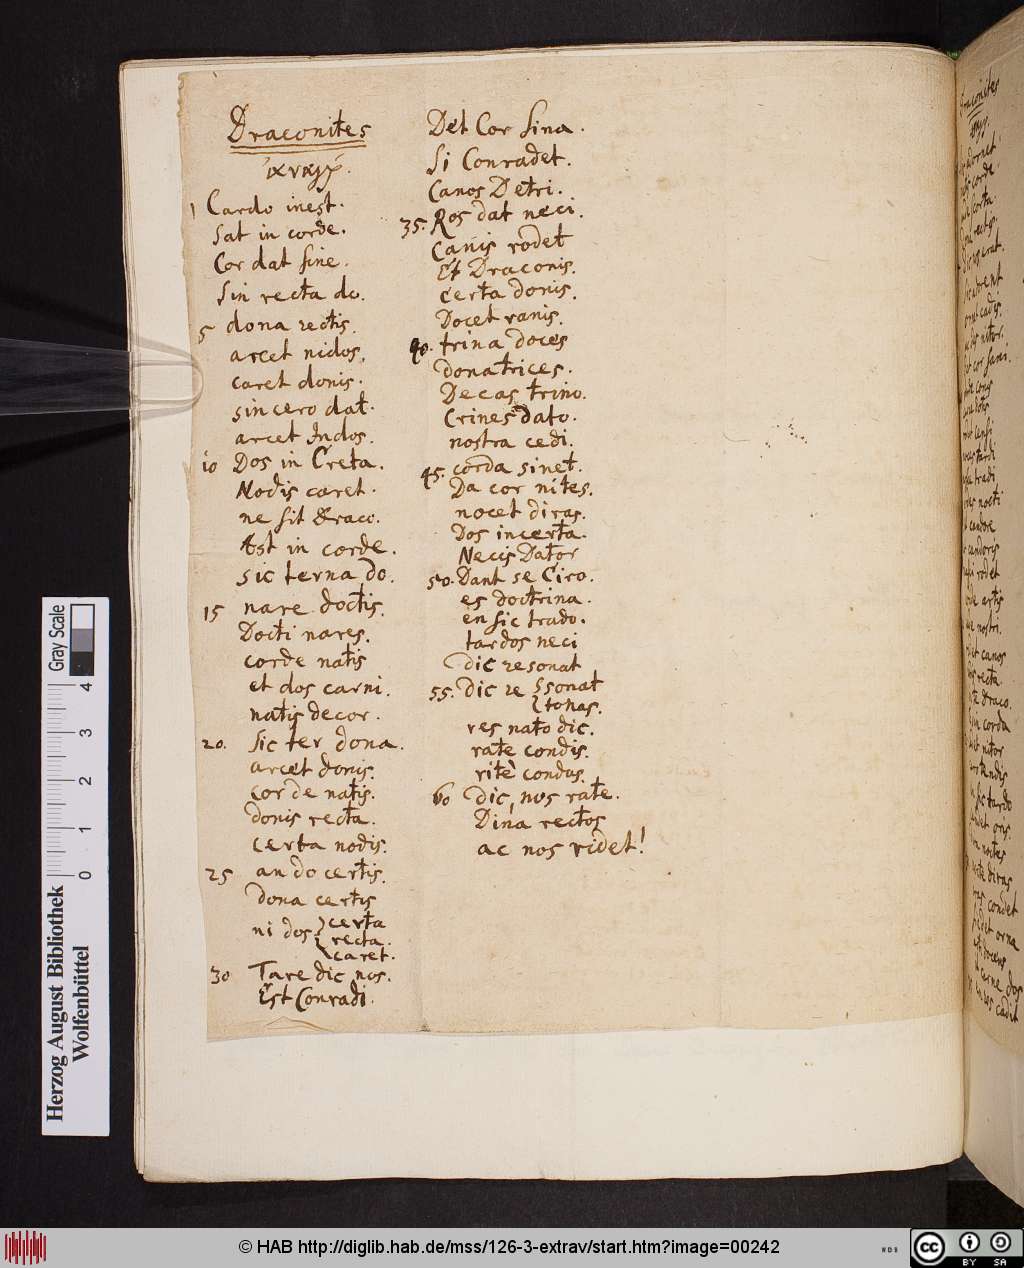 Draconites
1 Cardo inest.
Sat in corde.
Cor dat sine.
Sin recta do.
5 dona rectis.
arcet nidos,
caret donis.
sincero dat.
arcet Indos.
10 Dos in Creta.
Nodis caret.
ne sit draco.
Ast in corde.
sic terna do.
15 nare doctis.
Docti nares.
corde natis
et dos carni.
natis decor.
20. sic ter dona.
arcet donis.
corde natis.
donis recta.
certa nodis.
25 an do certis.
dona certis
ni dos certa
recta.
caret.
30 Tare dic nos.
Est Conradi.
Det Cor sina.
Si Conradet.
Canos Detri.
35. Ros dat neci.
Canis rodet
Et Draconis.
certa donis.
Docet ranis.
40. trina doces
donatrices.
Decas trino.
Crines dato.
nostra cedi.
45. corda sinet.
Da cor nites.
nocet diras.
Dos incerta.
Necis Dator
50. Dant se Ciro.
es doctrina.
en sic trado.
tardos neci
dic resonat
55. dic re sonat
tonas.
res nato dic.
rate condis.
ritè condas.
60 dic, nos rate.
Dina rectos
ac nos ridet!
Herzog August Bibliothek
Wolfenbüttel
0 1 2 3 4
Gray Scale
© HAB http://diglib.hab.de/mss/126-3-extrav/start.htm?image=00242
cc BY SA